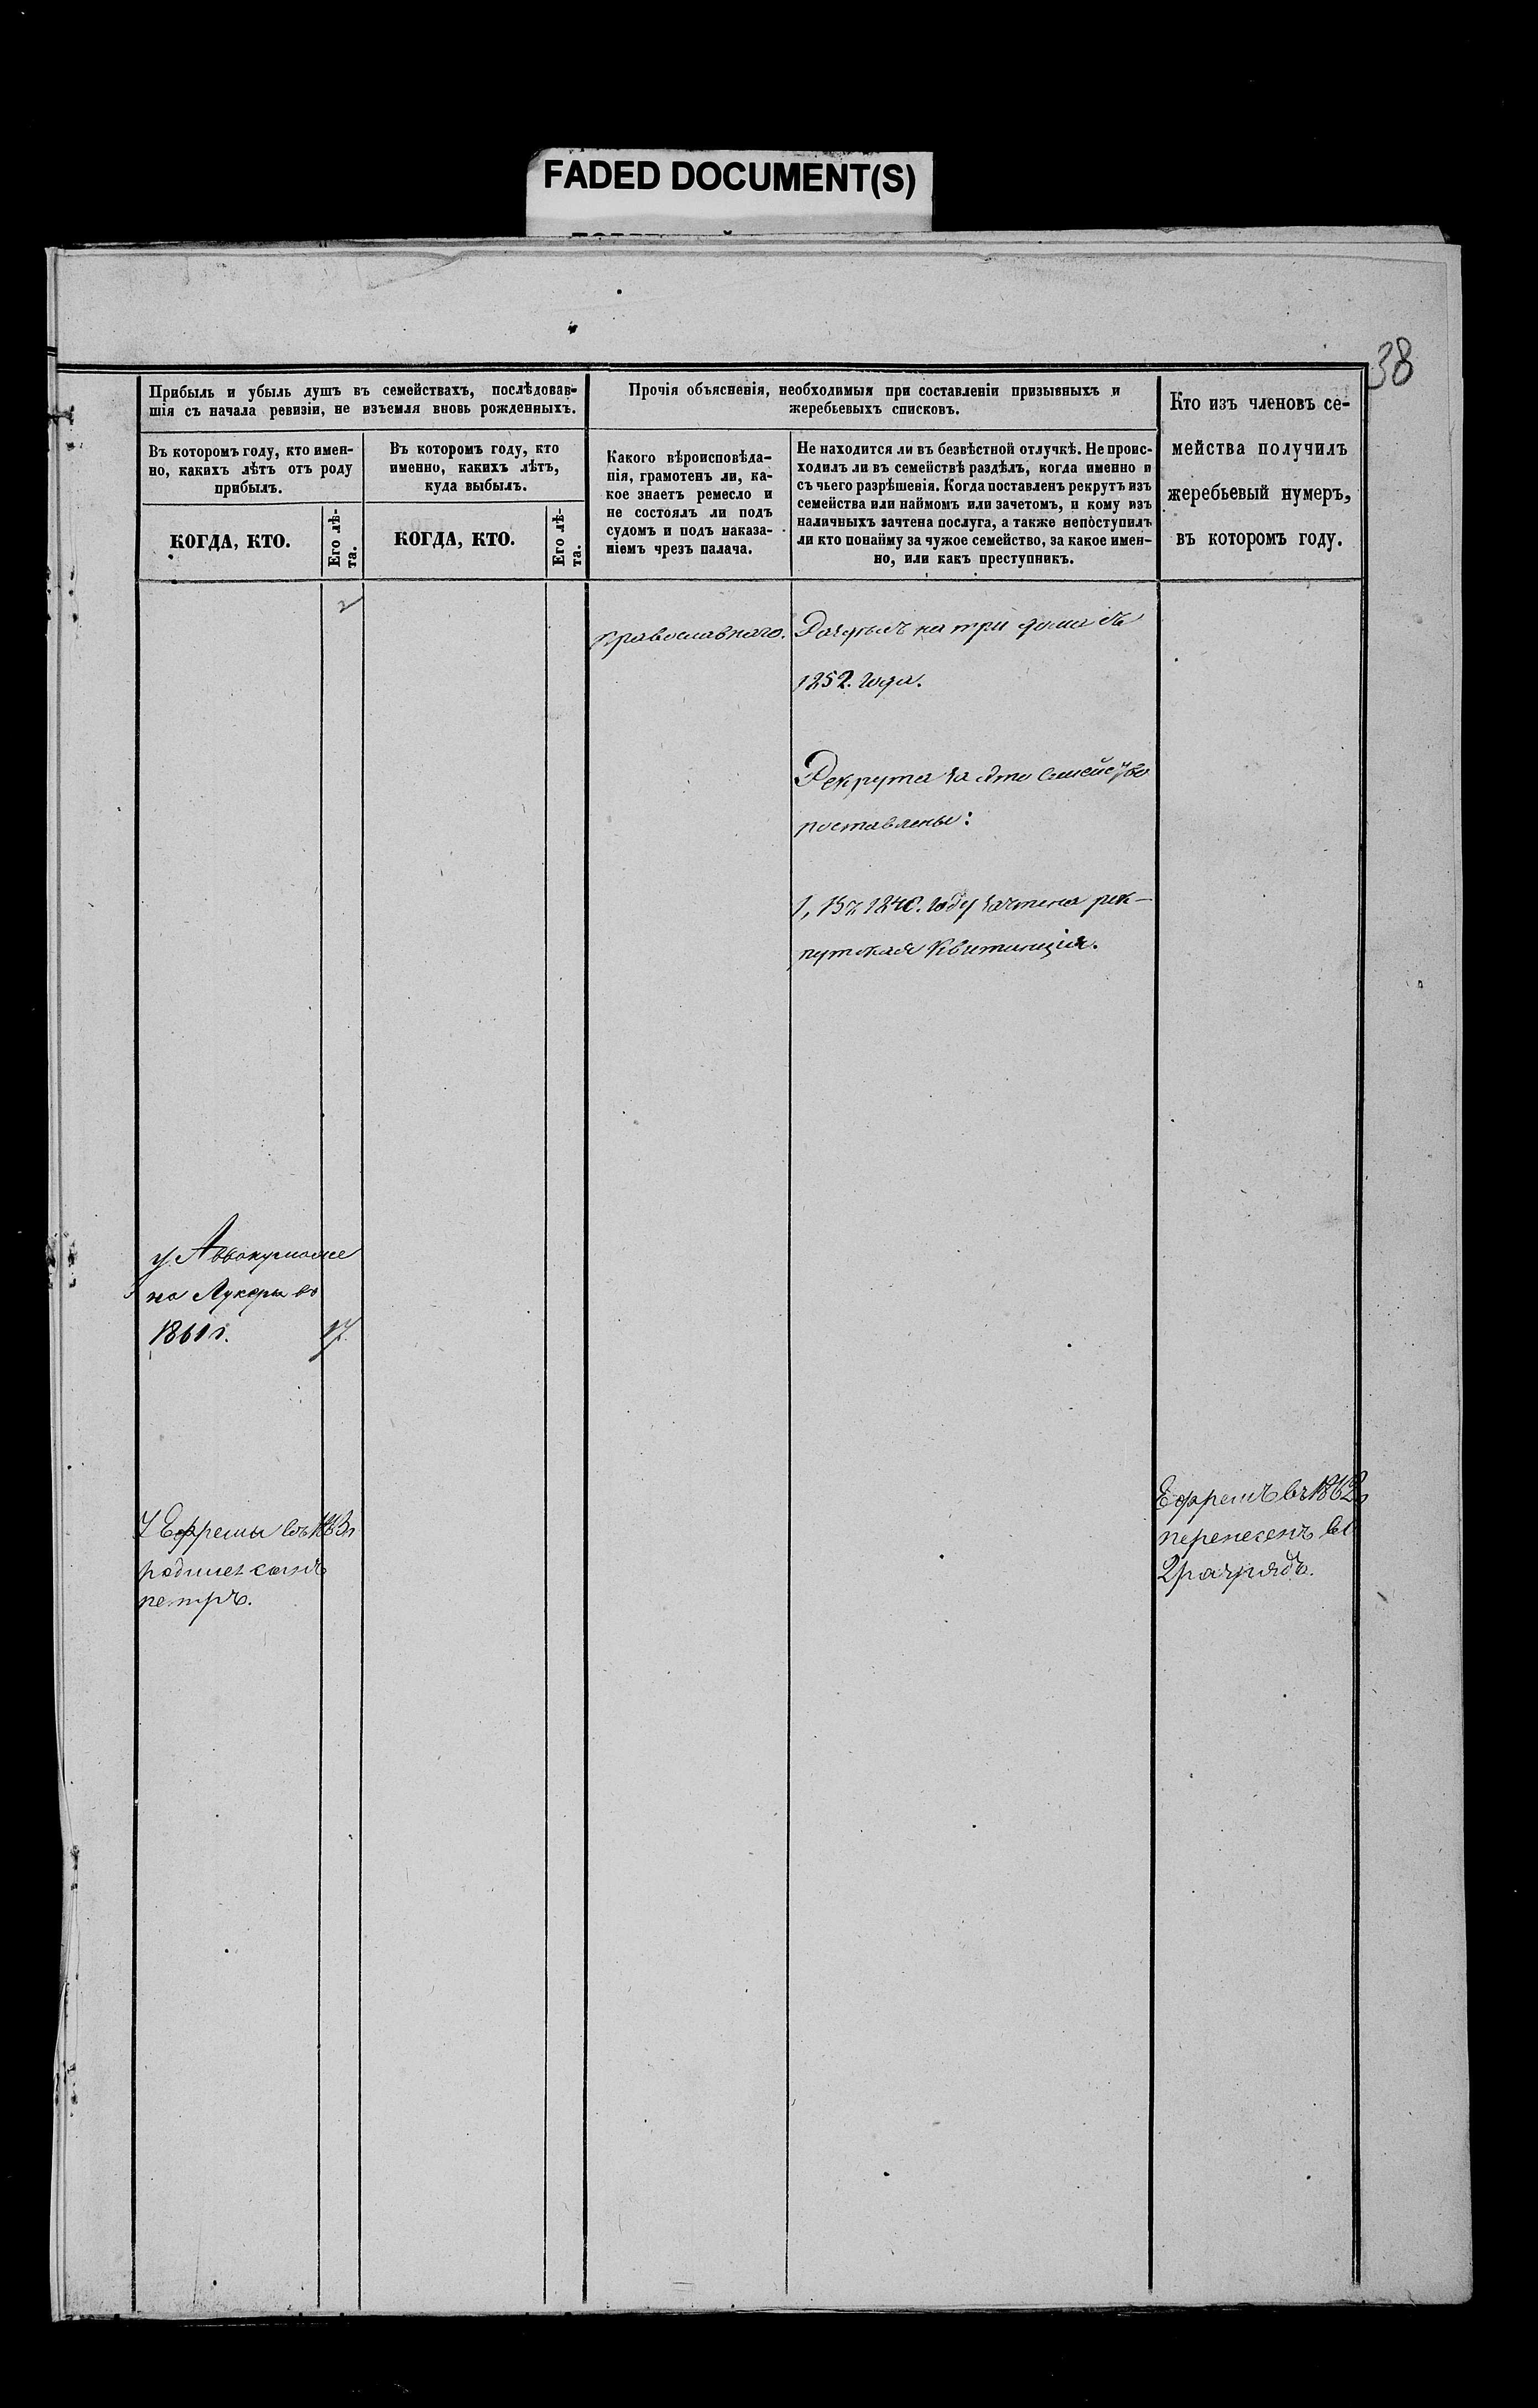 FADED DOCUMENT(S)
38
Прибыль и убыль душъ въ семействахъ, послѣдовав-
шія съ начала ревизіи, не изъемля вновь рожденныхъ.
Въ которомъ году, кто имен-
но, какихъ лѣтъ отъ роду
прибылъ.
КОГДА, КТО.
Его лѣ-
та.
Въ которомъ году, кто
именно, какихъ лѣтъ,
куда выбылъ.
КОГДА, КТО.
Его лѣ-
та.
Прочія объясненія, необходимыя при составленіи призывныхъ и
жеребьевыхъ списковъ.
Какого вѣроисповѣда-
нія, грамотенъ ли, ка-
кое знаетъ ремесло и
не состоялъ ли подъ
судомъ и подъ наказа-
ніемъ чрезъ палача.
Не находится ли въ безвѣстной отлучкѣ. Не проис-
ходилъ ли въ семействѣ раздѣлъ, когда именно и
съ чьего разрѣшенія. Когда поставленъ рекрутъ изъ
семейства или наймомъ или зачетомъ, и кому изъ
наличныхъ зачтена послуга, а также непоступилъ
ли кто понайму за чужое семейство, за какое имен-
но, или какъ преступникъ.
Кто изъ членовъ се-
мейства получилъ
жеребьевый нумеръ,
въ которомъ году.
православнаго.
на три дома съ
1852. года.
Рекрута за это семейство
поставлены:
1, Въ 184 . году зачтена рек-
рутская Квитанція.
у
на Лукеры во
1861 г. 17.
У Ефрема въ 1863 г
родился сынъ
петръ.
Ефремъ въ 1863 г
перенесенъ во
2 разрядъ.